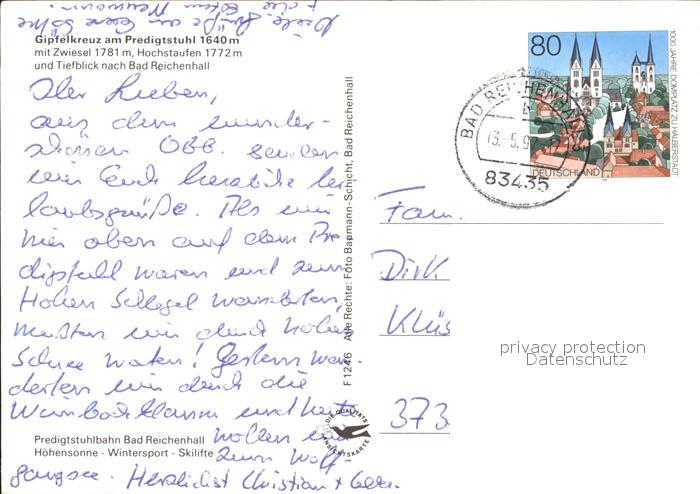 Viele Grüße an Eure Söhne
Gipfelkreuz am Predigtstuhl 1640 m
mit Zwiesel 1781 m, Hochstaufen 1772 m
und Tiefblick nach Bad Reichenhall
Ihr Lieben,
aus dem wunder-
schönen OBB. senden
wir Euch herzliche Ur
laubsgrüße. Als wir
hier oben auf dem Pre
digstuhl waren und zum
Hohen Schlegel wanderten,
mußten wir durch hohen
Schnee waten! Gestern wan
derten wir durch die
Weinbachklamm und heute
wollen wir
zum Wolf-
gangsee. Herzlichst Christian +
Predigtstuhlbahn Bad Reichenhall
Höhensonne - Wintersport - Skilifte
F 1246 Alle Rechte: Foto Baumann-Schicht, Bad Reichenhall
DIE QUALITÄTS
ANSICHTSKARTE
80
DEUTSCHLAND
1000 JAHRE DOMPLATZ ZU HALBERSTADT
BAD REICHENHALL
13.-5.9
83435
Fam.
Dirk
Klüs
373
privacy protection
Datenschutz